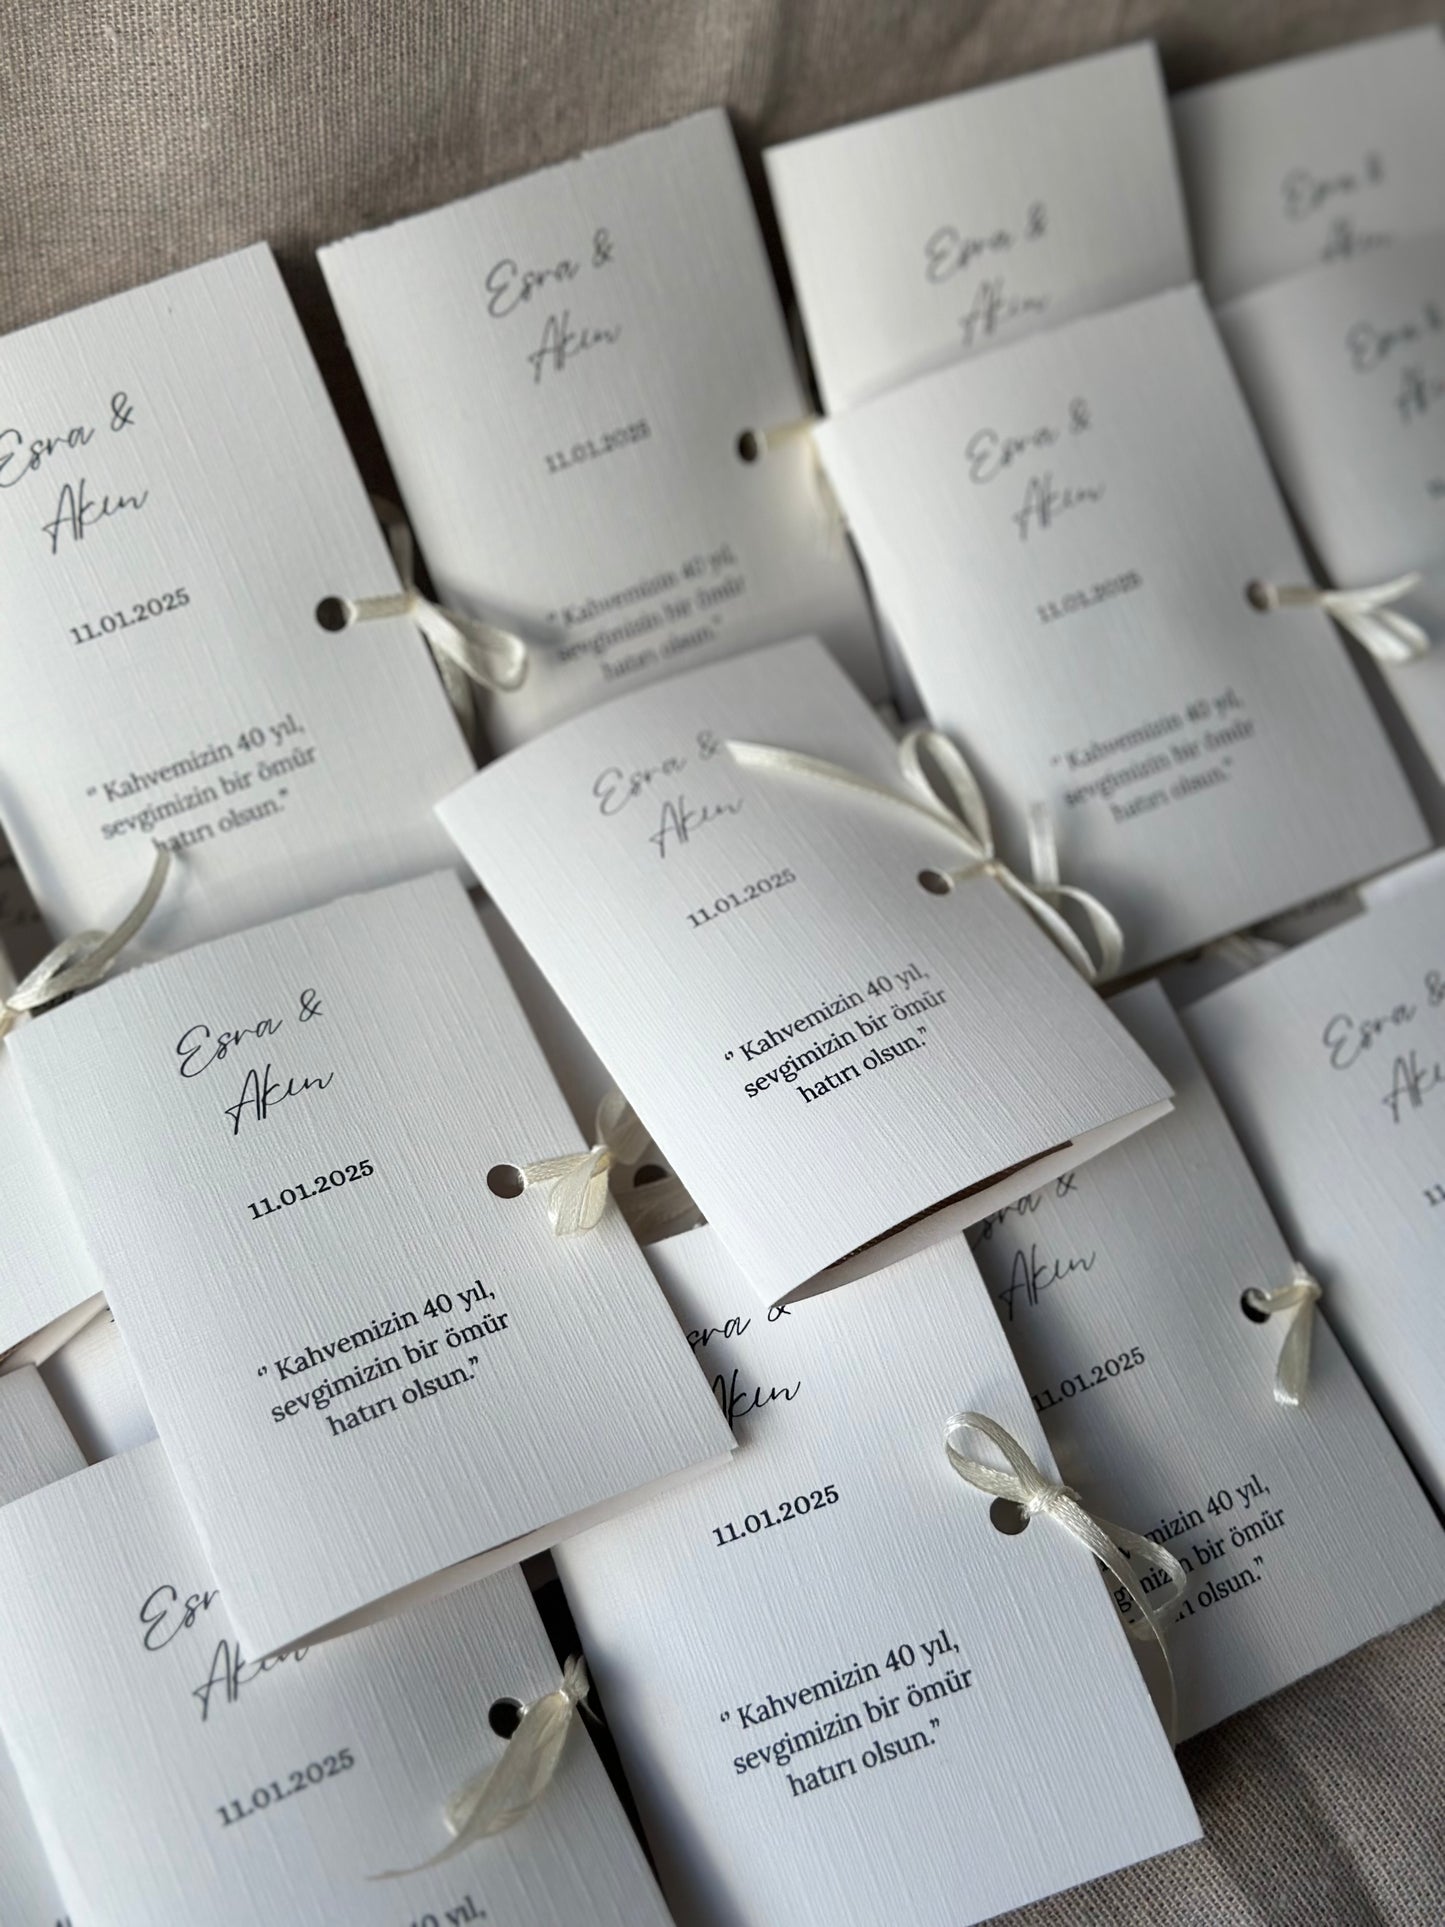 Esra &
Akın
11.01.2025
“ Kahvemizin 40 yıl,
sevgimizin bir ömür
hatırı olsun.”
Esra &
Akın
11.01.2025
“ Kahvemizin 40 yıl,
sevgimizin bir ömür
hatırı olsun.”
Esra &
Akın
Esra &
Akın
Esra &
Esra &
Akın
11.01.2025
“ Kahvemizin 40 yıl,
sevgimizin bir ömür
hatırı olsun.”
Esra &
Akın
11.01.2025
“ Kahvemizin 40 yıl,
sevgimizin bir ömür
hatırı olsun.”
Esra &
Akın
11.01.2025
“ Kahvemizin 40 yıl,
sevgimizin bir ömür
hatırı olsun.”
Esra &
Akın
11.01.2025
“ Kahvemizin 40 yıl,
sevgimizin bir ömür
hatırı olsun.”
Akın
11.01.2025
40 yıl,
bir ömür
olsun.”
Esra &
Akın
11.01.2025
40 yıl,